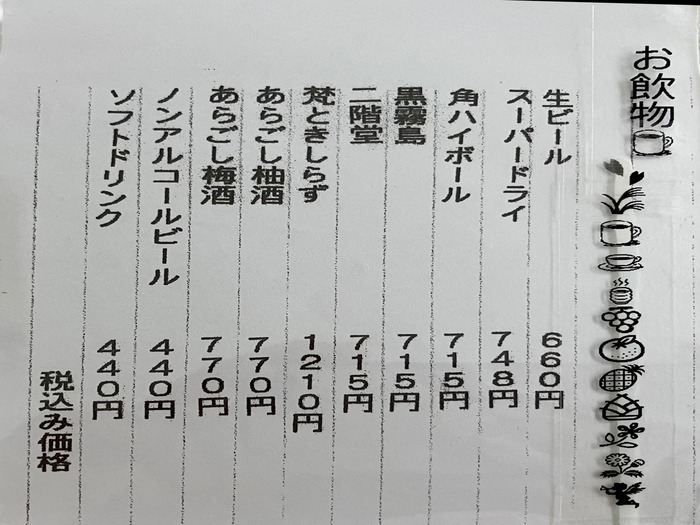 お飲物
生ビール 660円
スーパードライ 748円
角ハイボール 715円
黒霧島 715円
二階堂 715円
梵ときしらず 1210円
あらごし柚酒 770円
あらごし梅酒 770円
ノンアルコールビール 440円
ソフトドリンク 440円
税込み価格